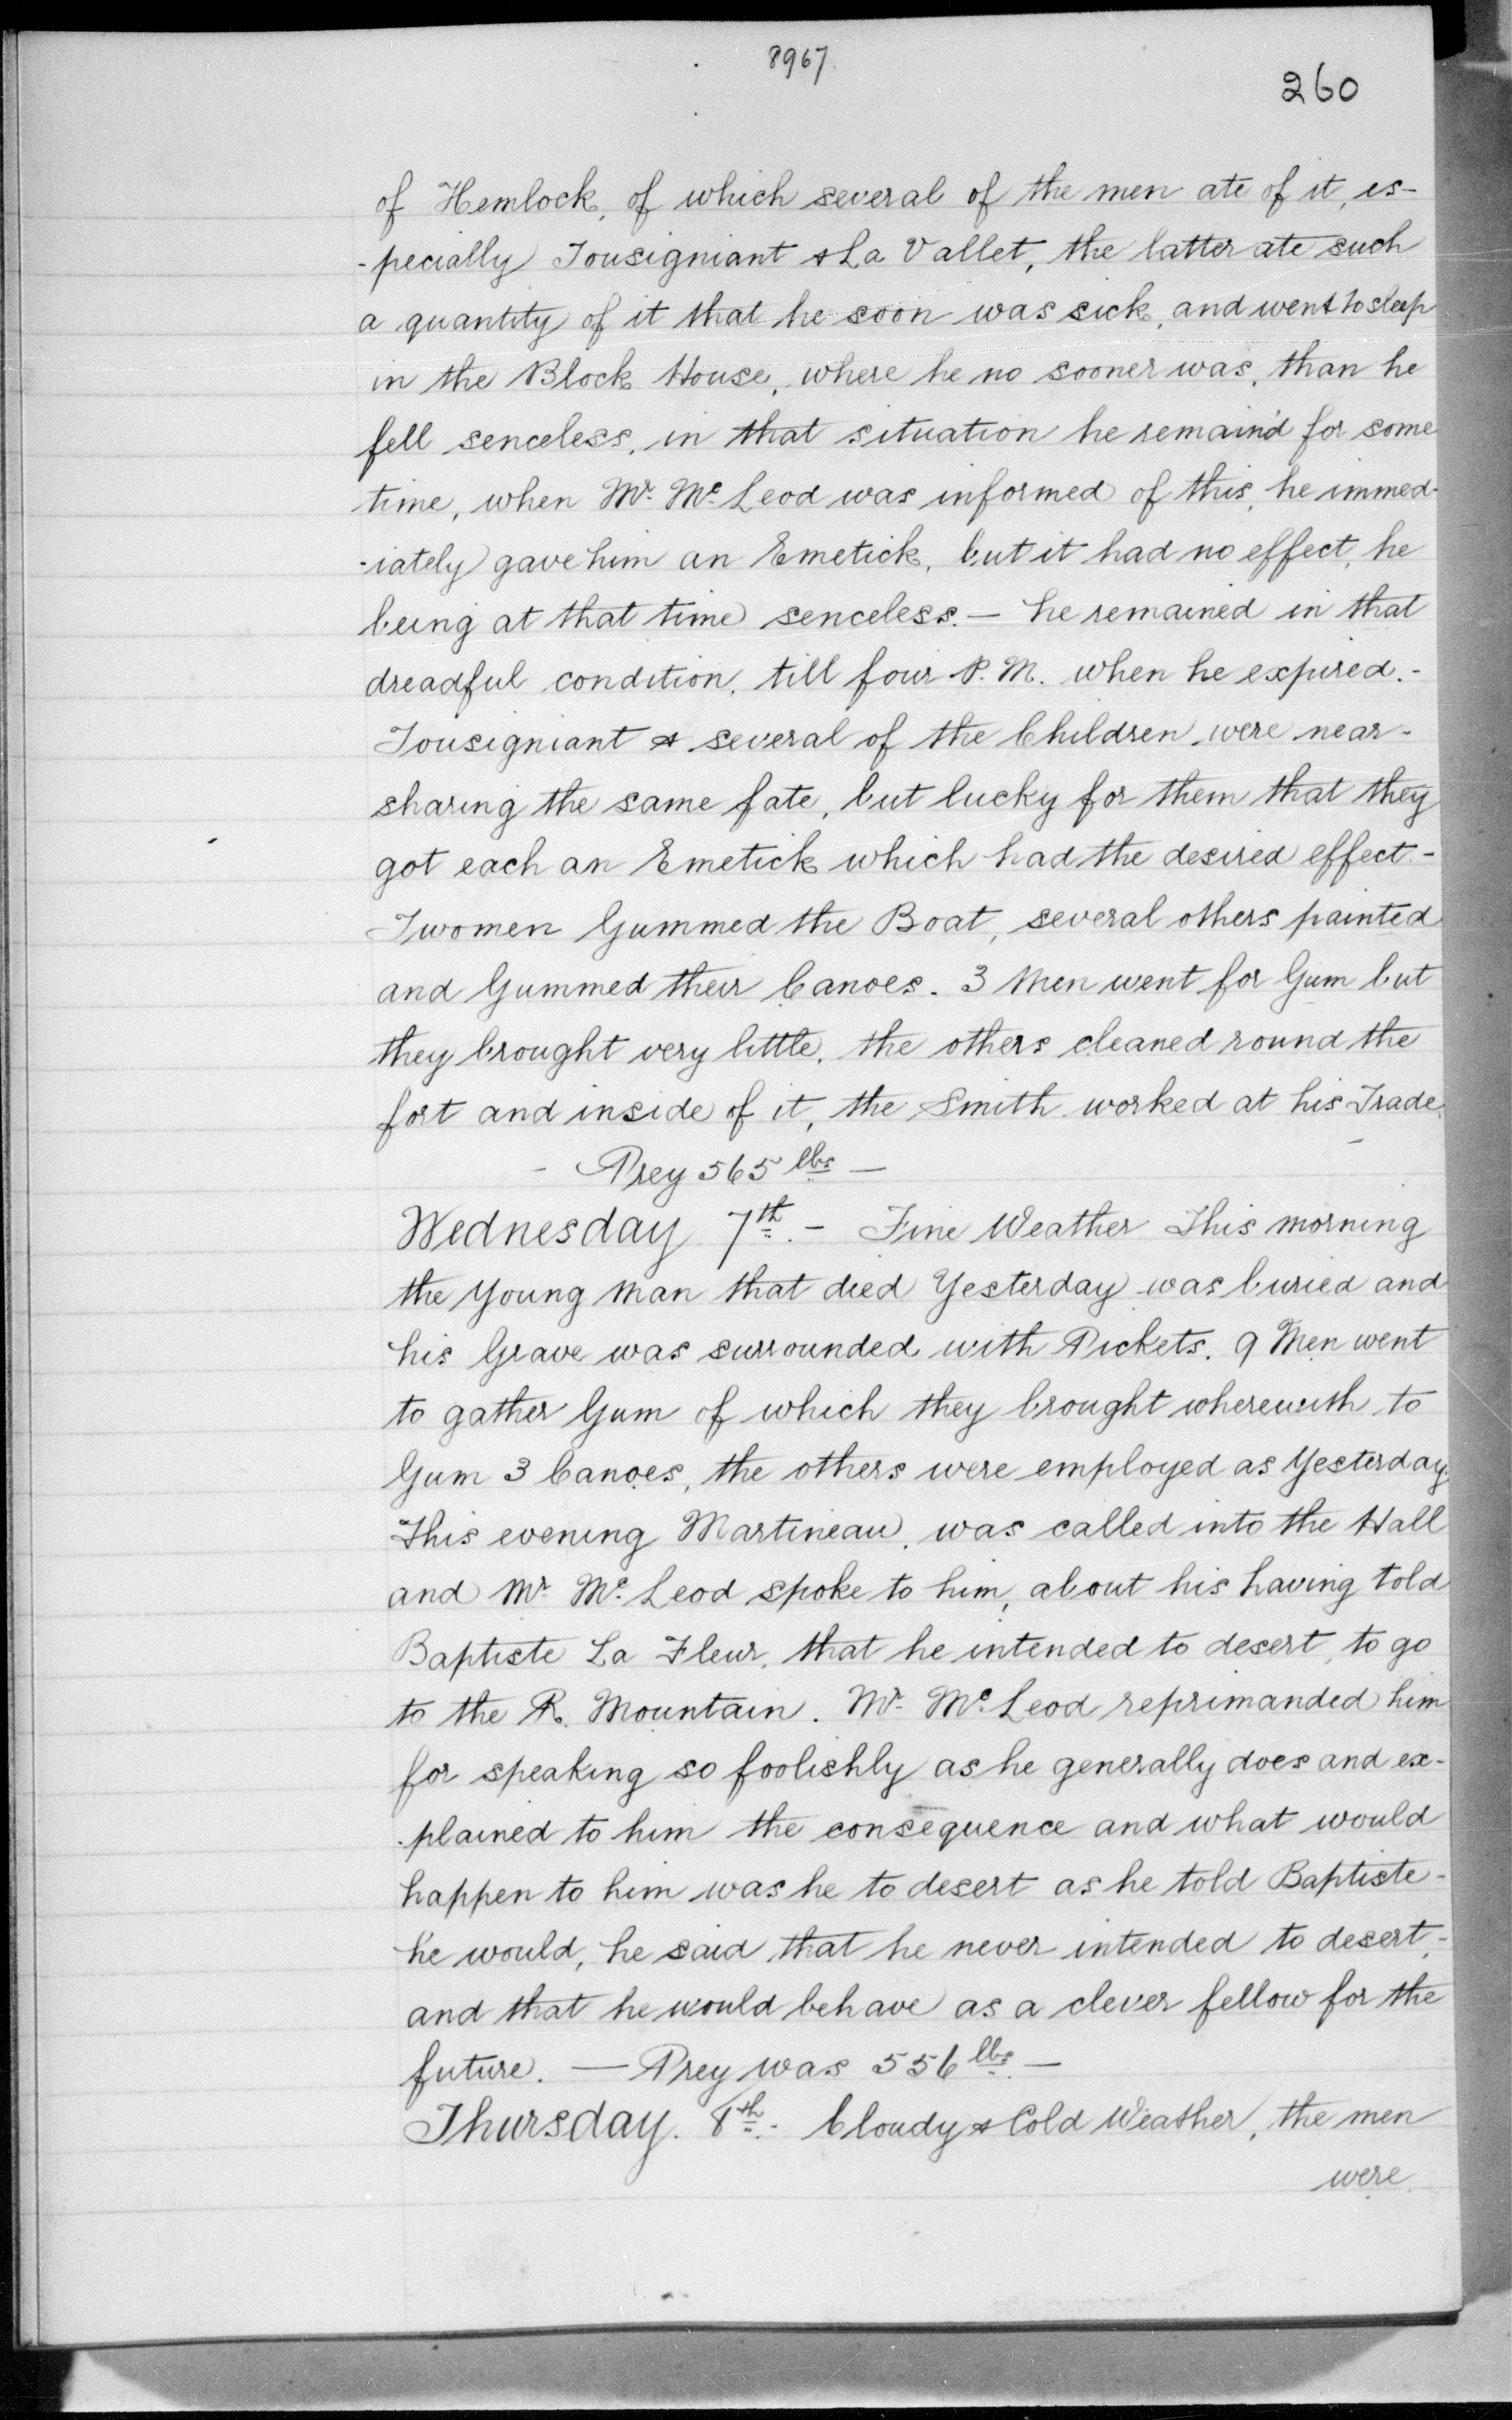 8967.
260
of Hemlock, of which several of the men ate of it, es-
-pecially Tousigniant & La Vallet, the latter ate such
a quantity of it that he soon was sick, and went to sleep
in the Block House, where he no sooner was, than he
fell senceless, in that situation he remain'd for some
time, when Mr. Mc. Leod was informed of this, he immed-
-iately gave him an Emetick, but it had no effect, he
being at that time senceless. — he remained in that
dreadful condition, till four P. M. when he expired. -
Tousigniant & several of the Children were near-
sharing the same fate, but lucky for them that they
got each an Emetick which had the desired effect. -
Two men Gummed the Boat, several others painted
and Gummed their Canoes. 3 Men went for Gum but
they brought very little, the others cleaned round the
fort and inside of it, the Smith worked at his Trade.
- Prey 565 lbs —
Wednesday 7th. - Fine Weather This morning
the Young Man that died Yesterday was buried and
his Grave was surrounded with Pickets. 9 Men went
to gather Gum of which they brought wherewith to
Gum 3 Canoes, the others were employed as Yesterday.
This evening Martineau, was called into the Hall
and Mr. Mc. Leod spoke to him, about his having told
Baptiste La Fleur, that he intended to desert, to go
to the R. Mountain. Mr. Mc. Leod reprimanded him
for speaking so foolishly as he generally does and ex-
-plained to him the consequence and what would
happen to him was he to desert as he told Baptiste -
he would, he said that he never intended to desert, -
and that he would behave as a clever fellow for the
future. — Prey was 556 lbs. —
Thursday. 8th. - Cloudy & Cold Weather, the men
were